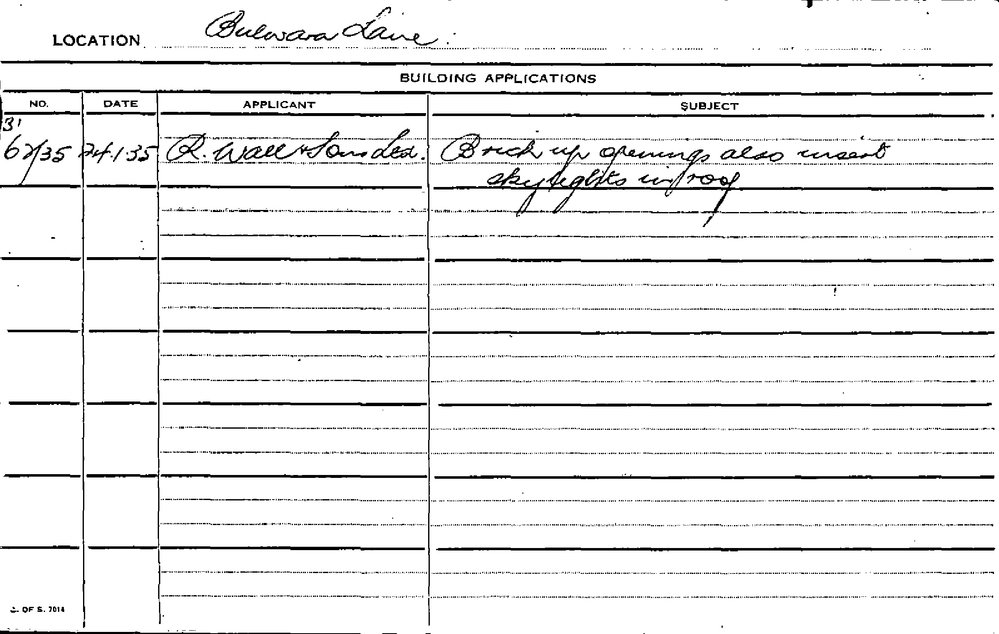 LOCATION Bulwara Lane.
BUILDING APPLICATIONS
NO. DATE APPLICANT SUBJECT
31
62/35 24.1.35 R. Wall & Sons Ltd. Brick up openings also insert
skylights in roof
C. OF S. 7014